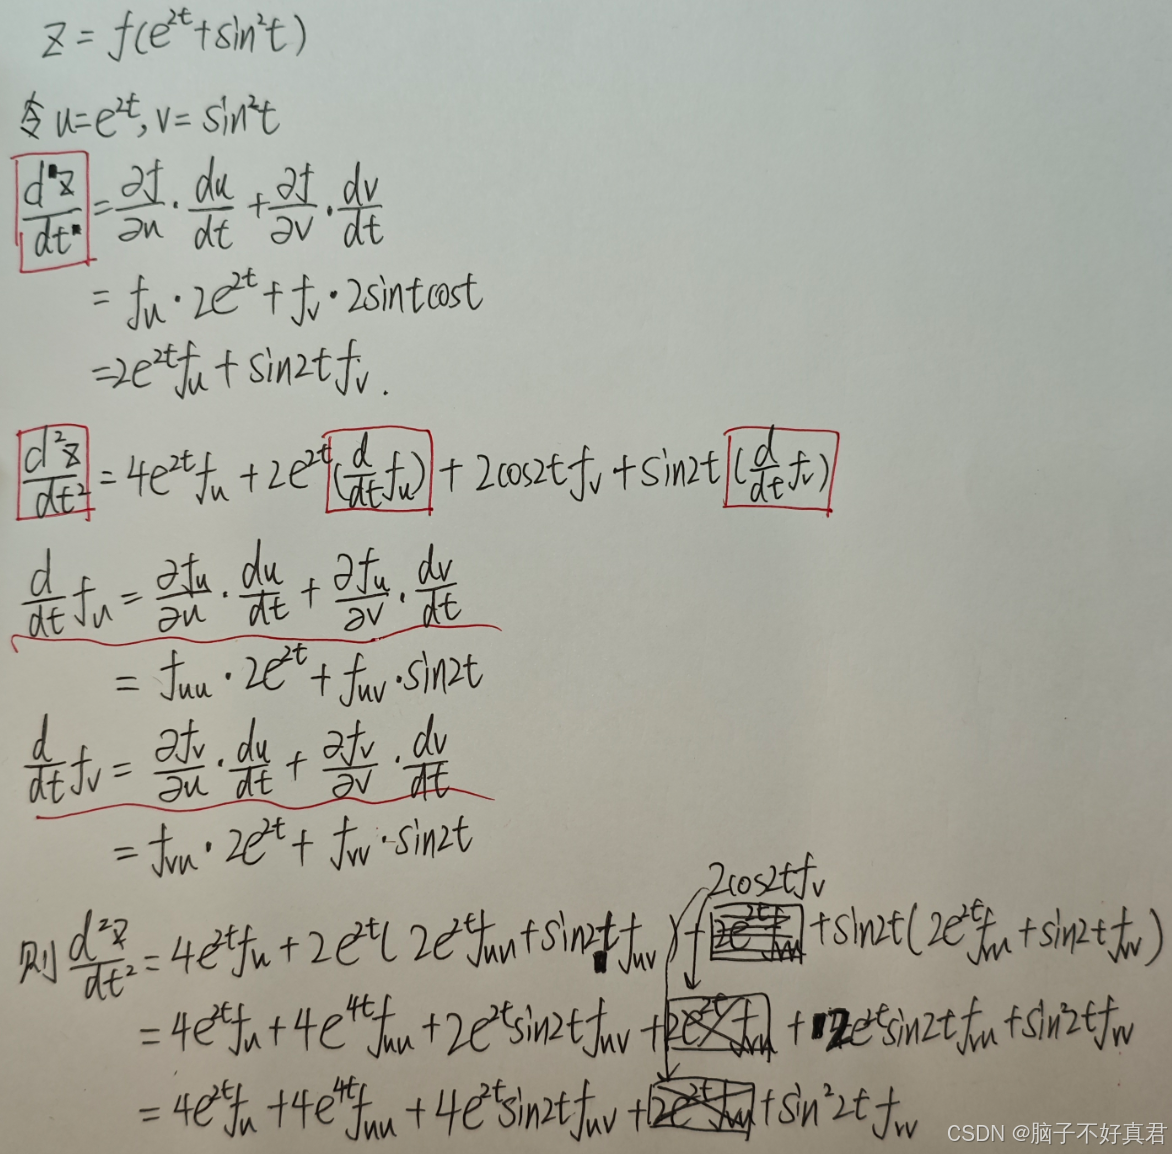 z = f(e^{2t}+sin^2t)
令 u=e^{2t}, v=sin^2t
dz/dt = ∂f/∂u · du/dt + ∂f/∂v · dv/dt
= f_u · 2e^{2t} + f_v · 2sintcost
= 2e^{2t}f_u + sin2t f_v .
d^2z/dt^2 = 4e^{2t}f_u + 2e^{2t}(d/dt f_u) + 2cos2t f_v + sin2t (d/dt f_v)
d/dt f_u = ∂f_u/∂u · du/dt + ∂f_u/∂v · dv/dt
= f_{uu} · 2e^{2t} + f_{uv} · sin2t
d/dt f_v = ∂f_v/∂u · du/dt + ∂f_v/∂v · dv/dt
= f_{vu} · 2e^{2t} + f_{vv} · sin2t
2cos2t f_v
则 d^2z/dt^2 = 4e^{2t}f_u + 2e^{2t}( 2e^{2t}f_{uu} + sin2t f_{uv} ) + + sin2t( 2e^{2t}f_{vu} + sin2t f_{vv} )
= 4e^{2t}f_u + 4e^{4t}f_{uu} + 2e^{2t}sin2t f_{uv} + 2e^{2t}f_{vu} + 2e^{2t}sin2t f_{vu} + sin^2 2t f_{vv}
= 4e^{2t}f_u + 4e^{4t}f_{uu} + 4e^{2t}sin2t f_{uv} + 2e^{2t}f_{vu} + sin^2 2t f_{vv}
CSDN @脑子不好真君